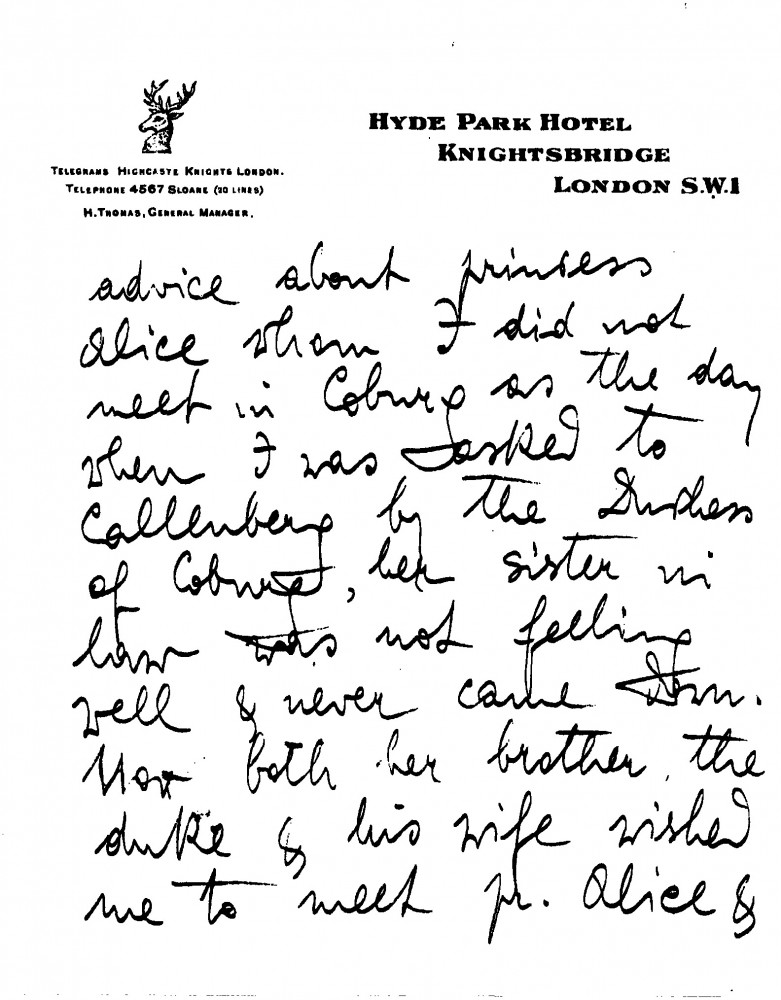 HYDE PARK HOTEL
KNIGHTSBRIDGE
LONDON S.W.1
TELEGRAMS HIGHCASTE KNIGHTS LONDON.
TELEPHONE 4567 SLOANE (20 LINES)
H. THOMAS, GENERAL MANAGER.
advice about princess
Alice whom I did not
meet in Coburg as the day
when I was asked to
Callenberg by the Duchess
of Coburg, her sister in
law was not feeling
well & never came down.
Now both her brother, the
duke & his wife wished
me to meet pr. Alice &